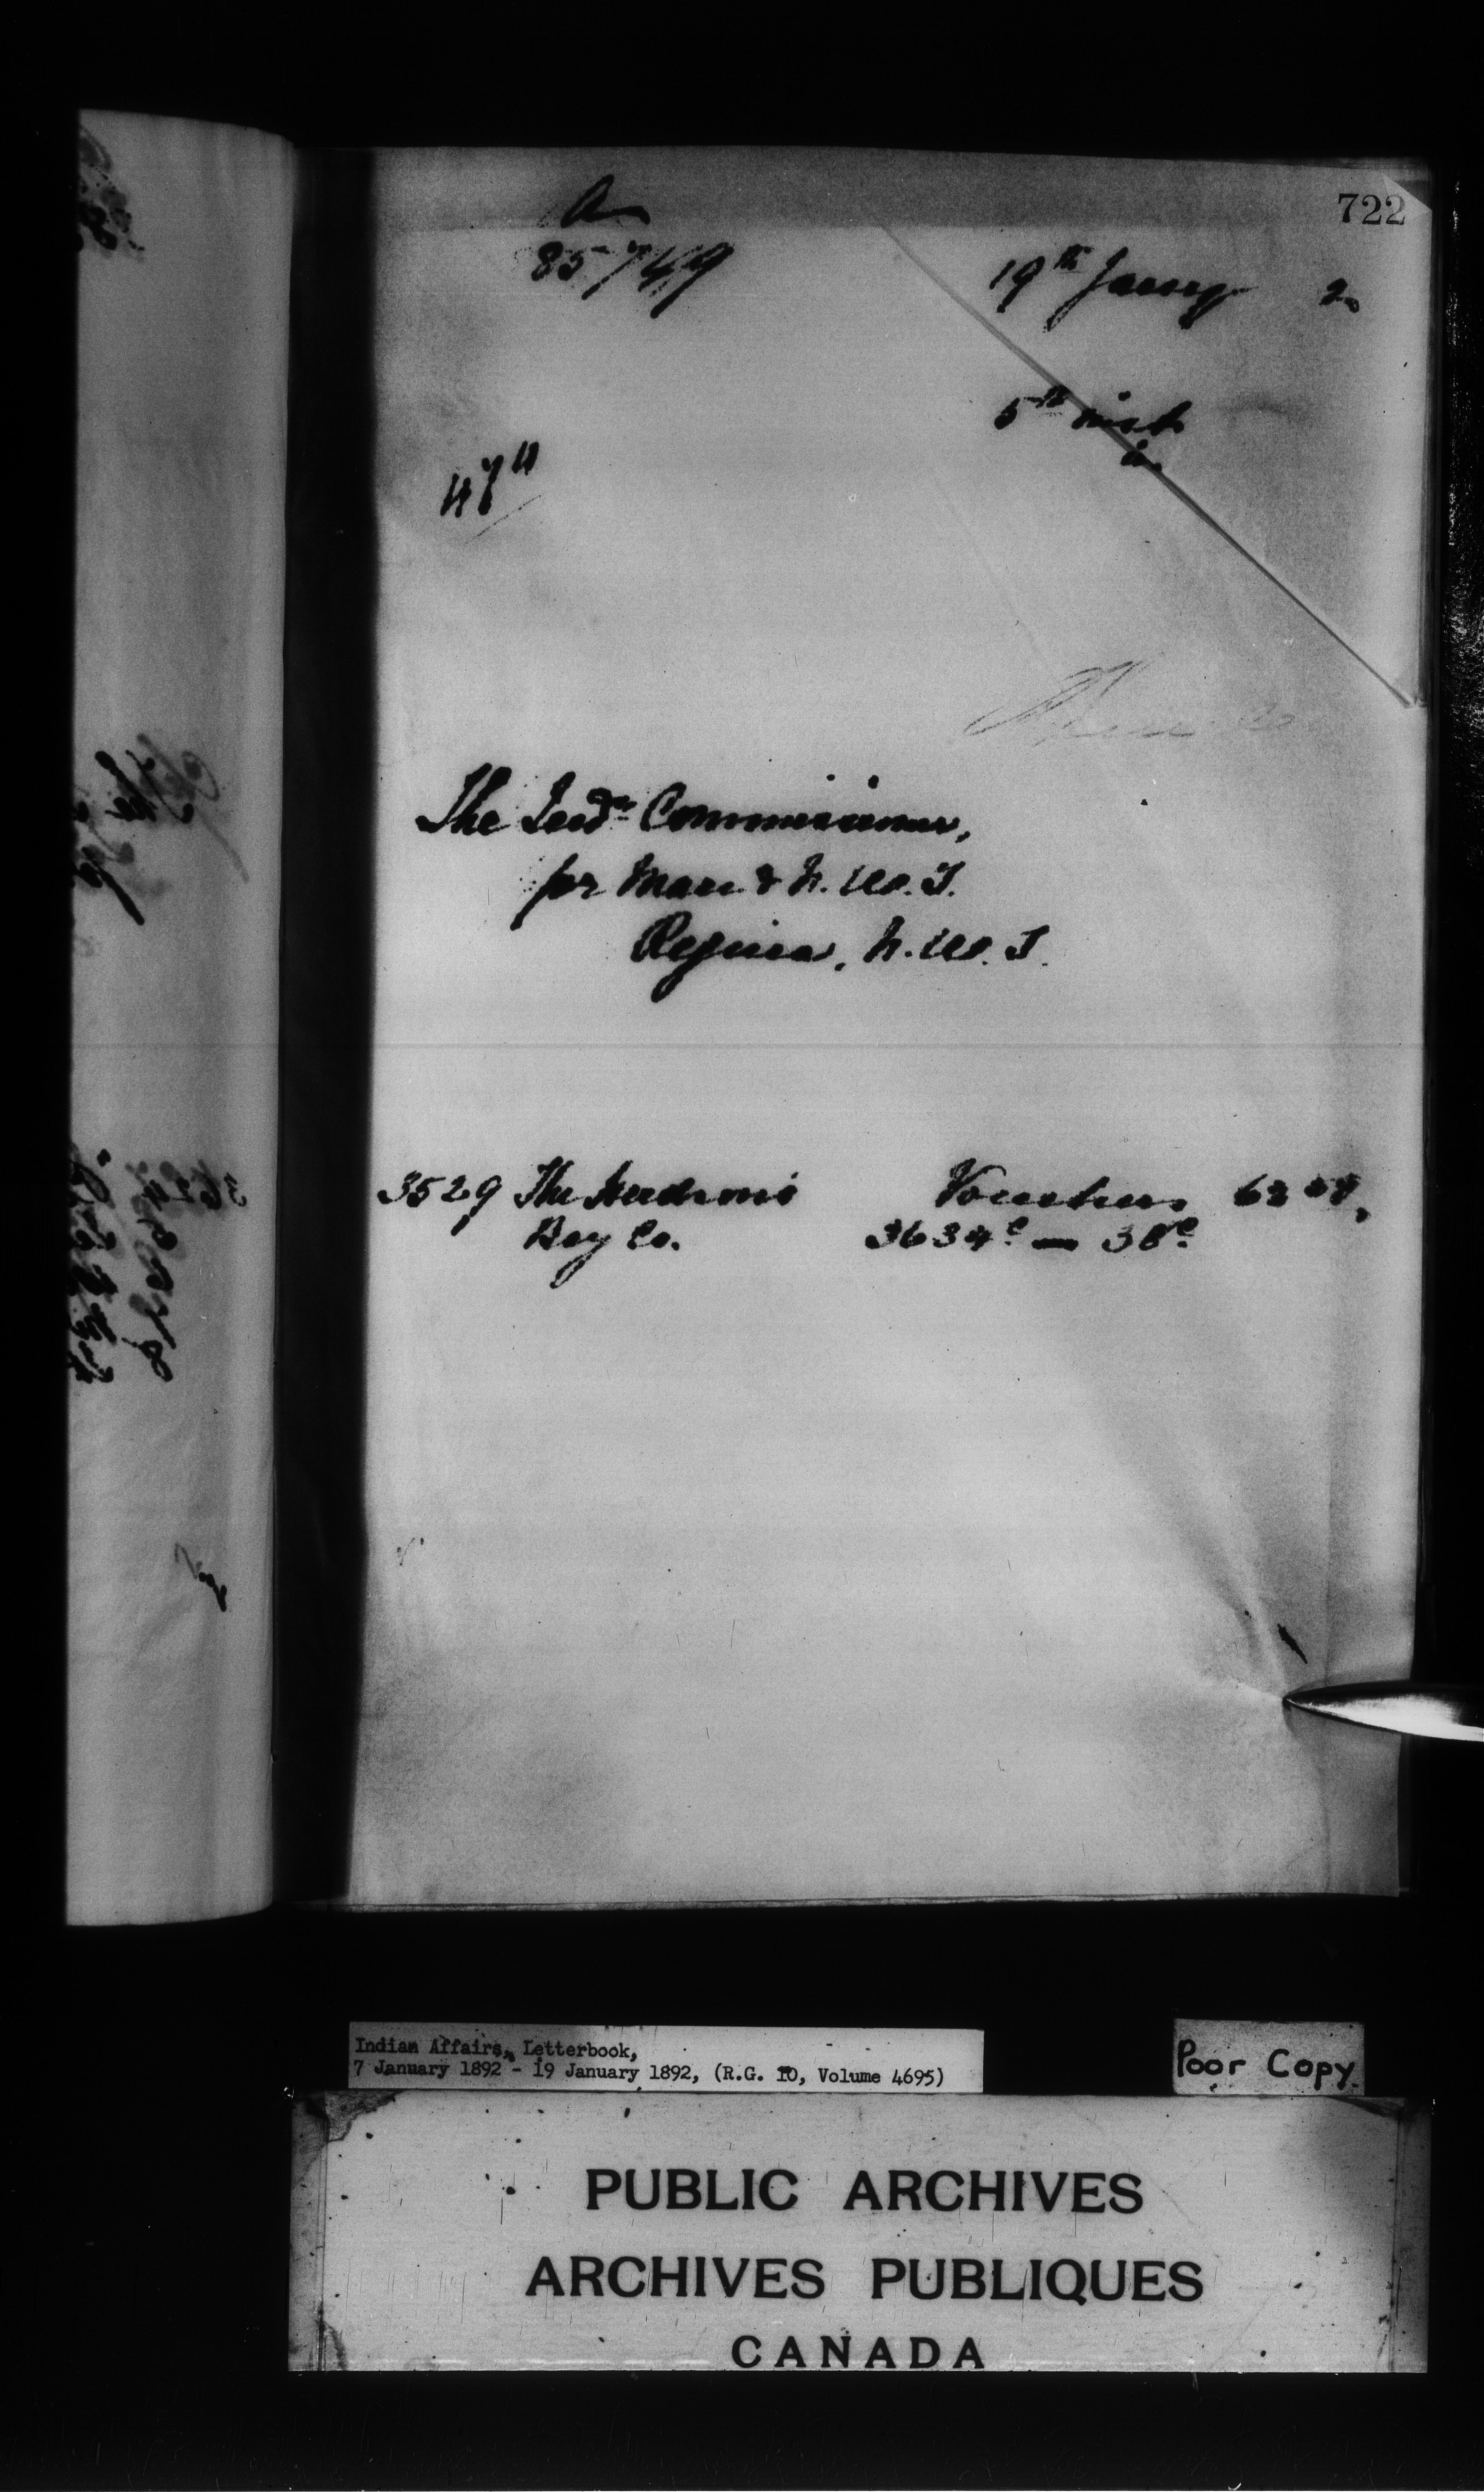 722
85749
19th Jany 2.
5th inst
474
The Indn Commissioner,
for Man & N.W.T.
Regina, N.W.T.
3529 The Hudson's Vouchers
Bay Co. 3634c — 38c
Indian Affairs, Letterbook,
7 January 1892 - 19 January 1892, (R.G. 10, Volume 4695)
Poor Copy
PUBLIC ARCHIVES
ARCHIVES PUBLIQUES
CANADA